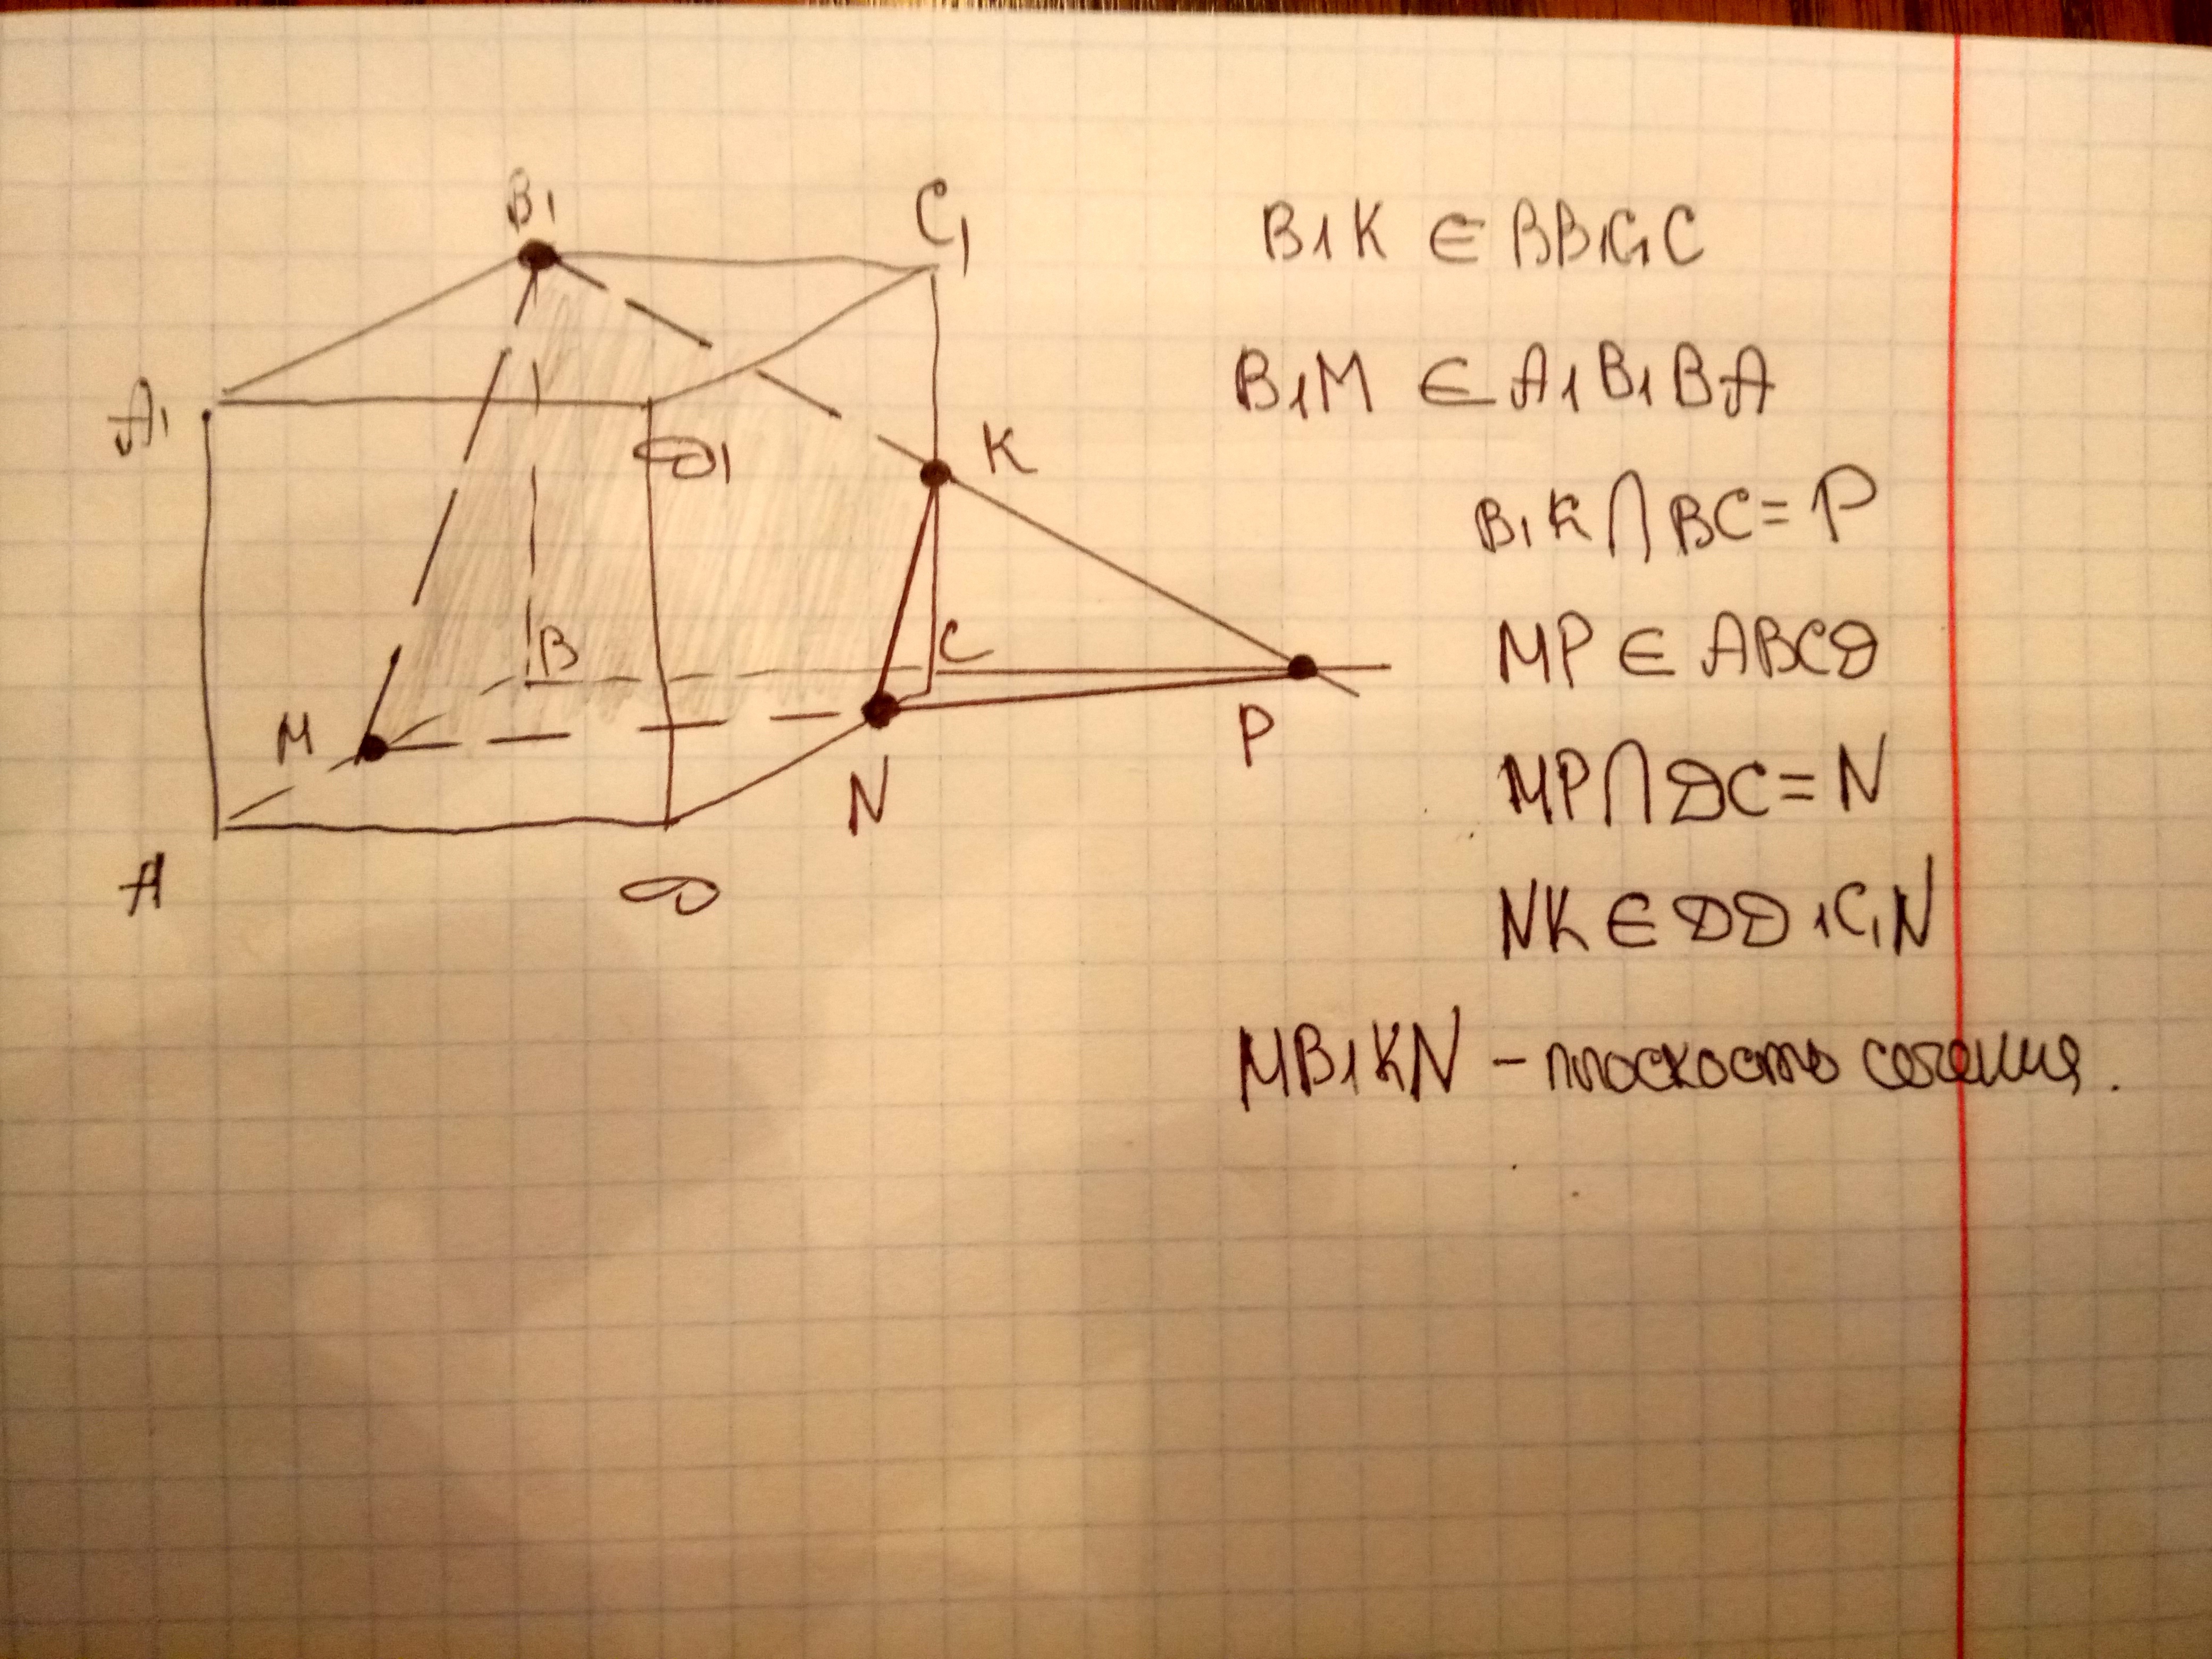 B1
C1
A1
D1
K
B
C
M
N
P
A
D
B1K ∈ BB1C1C
B1M ∈ A1B1BA
B1K ⋂ BC = P
MP ∈ ABCD
MP ⋂ DC = N
NK ∈ DD1C1N
MB1KN – плоскость сечения.